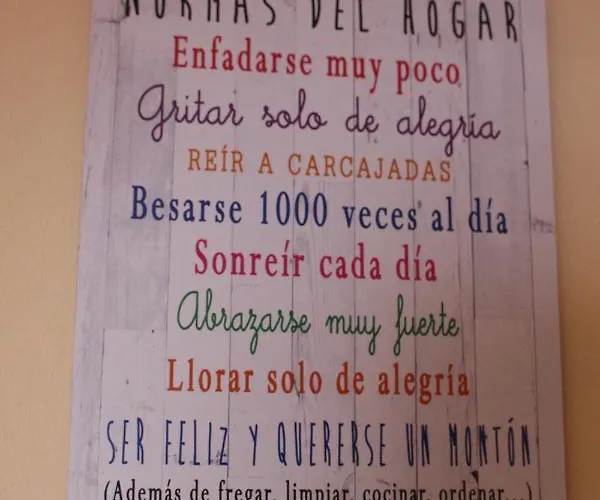 NORMAS DEL HOGAR
Enfadarse muy poco
Gritar solo de alegría
REÍR A CARCAJADAS
Besarse 1000 veces al día
Sonreír cada día
Abrazarse muy fuerte
Llorar solo de alegría
SER FELIZ Y QUERERSE UN MONTÓN
(Además de fregar, limpiar, cocinar, ordenar...)